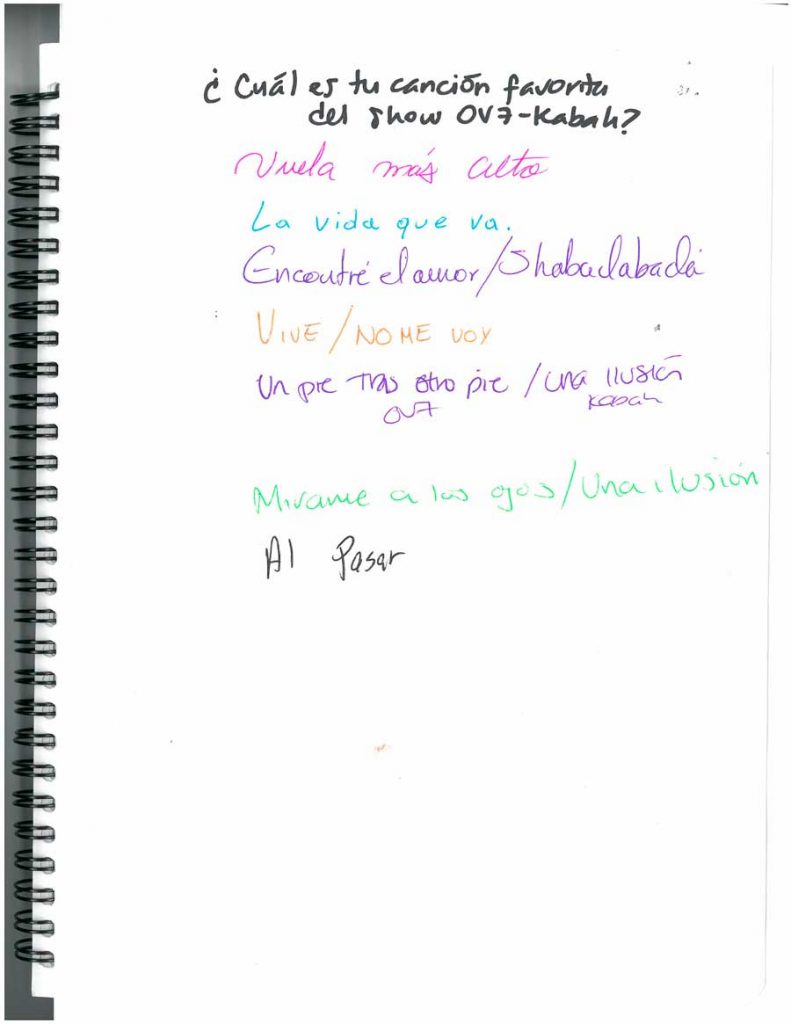 ¿Cuál es tu canción favorita
del show OV7-Kabah?
Vuela más alto
La vida que va.
Encontré el amor/Shabadabadá
VIVE/NO ME VOY
Un pie tras otro pie / una ilusión
OV7 Kabah
Mirame a los ojos/Una ilusión
Al Pasar